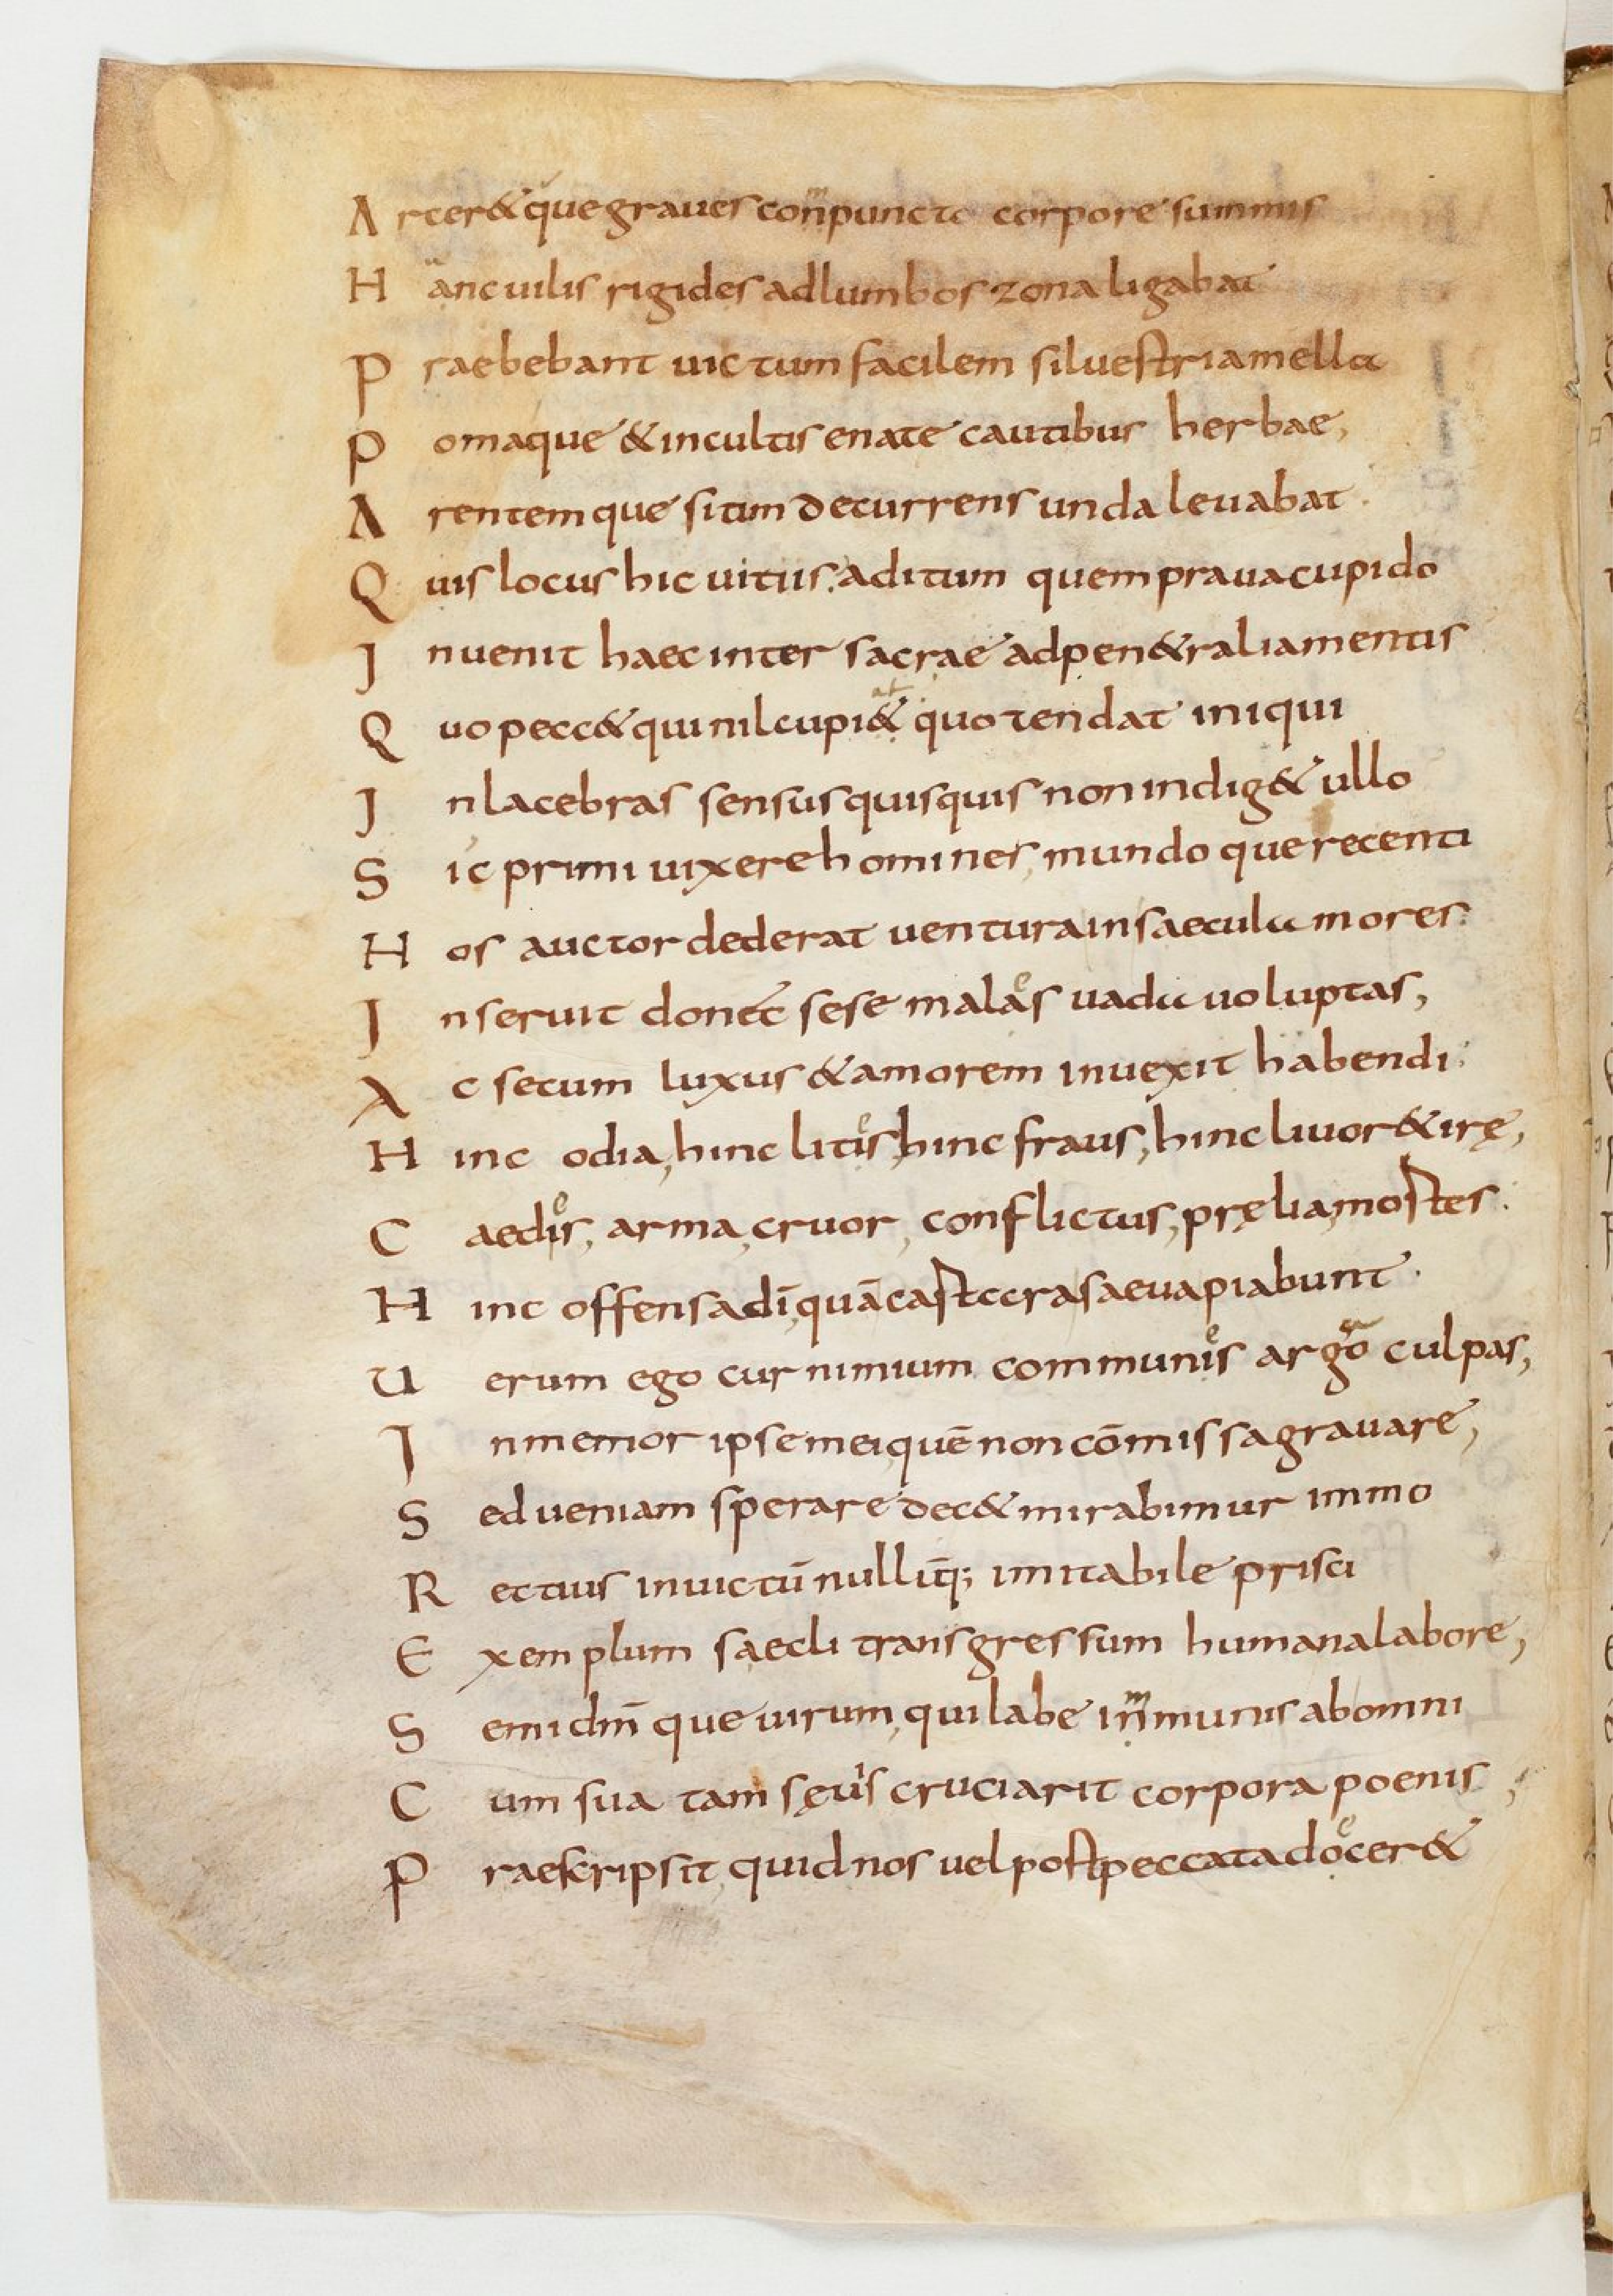 Arcer&que graues conmpuncto corpore summis
Hanc uilis rigides ad lumbos zona ligabat
Praebebant uictum facilem siluestria mella
Pomaque & incultis enate cautibus herbae,
Arentemque sitim decurrens unda leuabat.
Quis locus hic uitiis. aditum quem praua cupido
Inuenit haec inter sacrae ad pen&ralia mentis
Quo pecc& qui nil cupi&at quo tendat iniqui
Inlacebras sensus quisquis non indig& ullo
Sic primi uixere homines, mundoque recenti
Hos auctor dederat uentura in saecula mores.
Inseruit donec sese malaes uada uoluptas,
Ac secum luxus & amorem inuexit habendi.
Hinc odia, hinc lities, hinc fraus, hinc liuor & irę,
Caedies, arma, cruor, conflictus, pręlia, mostes.
Hinc offensa dī, quā castccra saeua piabunt.
Uerum ego cur nimium communies argoa culpas,
Inmemor ipse mei, quē non cōmissa grauare,
Sed ueniam sperare dec& mirabimur immo
Rectius inuictū nulliq̄; imitabile prisci
Exemplum saecli transgressum humana labore,
Semidm̄que uirum, qui labe inmmunis ab omni
Cum sua tam sęuis cruciarit corpora poenis,
Praescripsit, quid nos uel post peccata doecer&